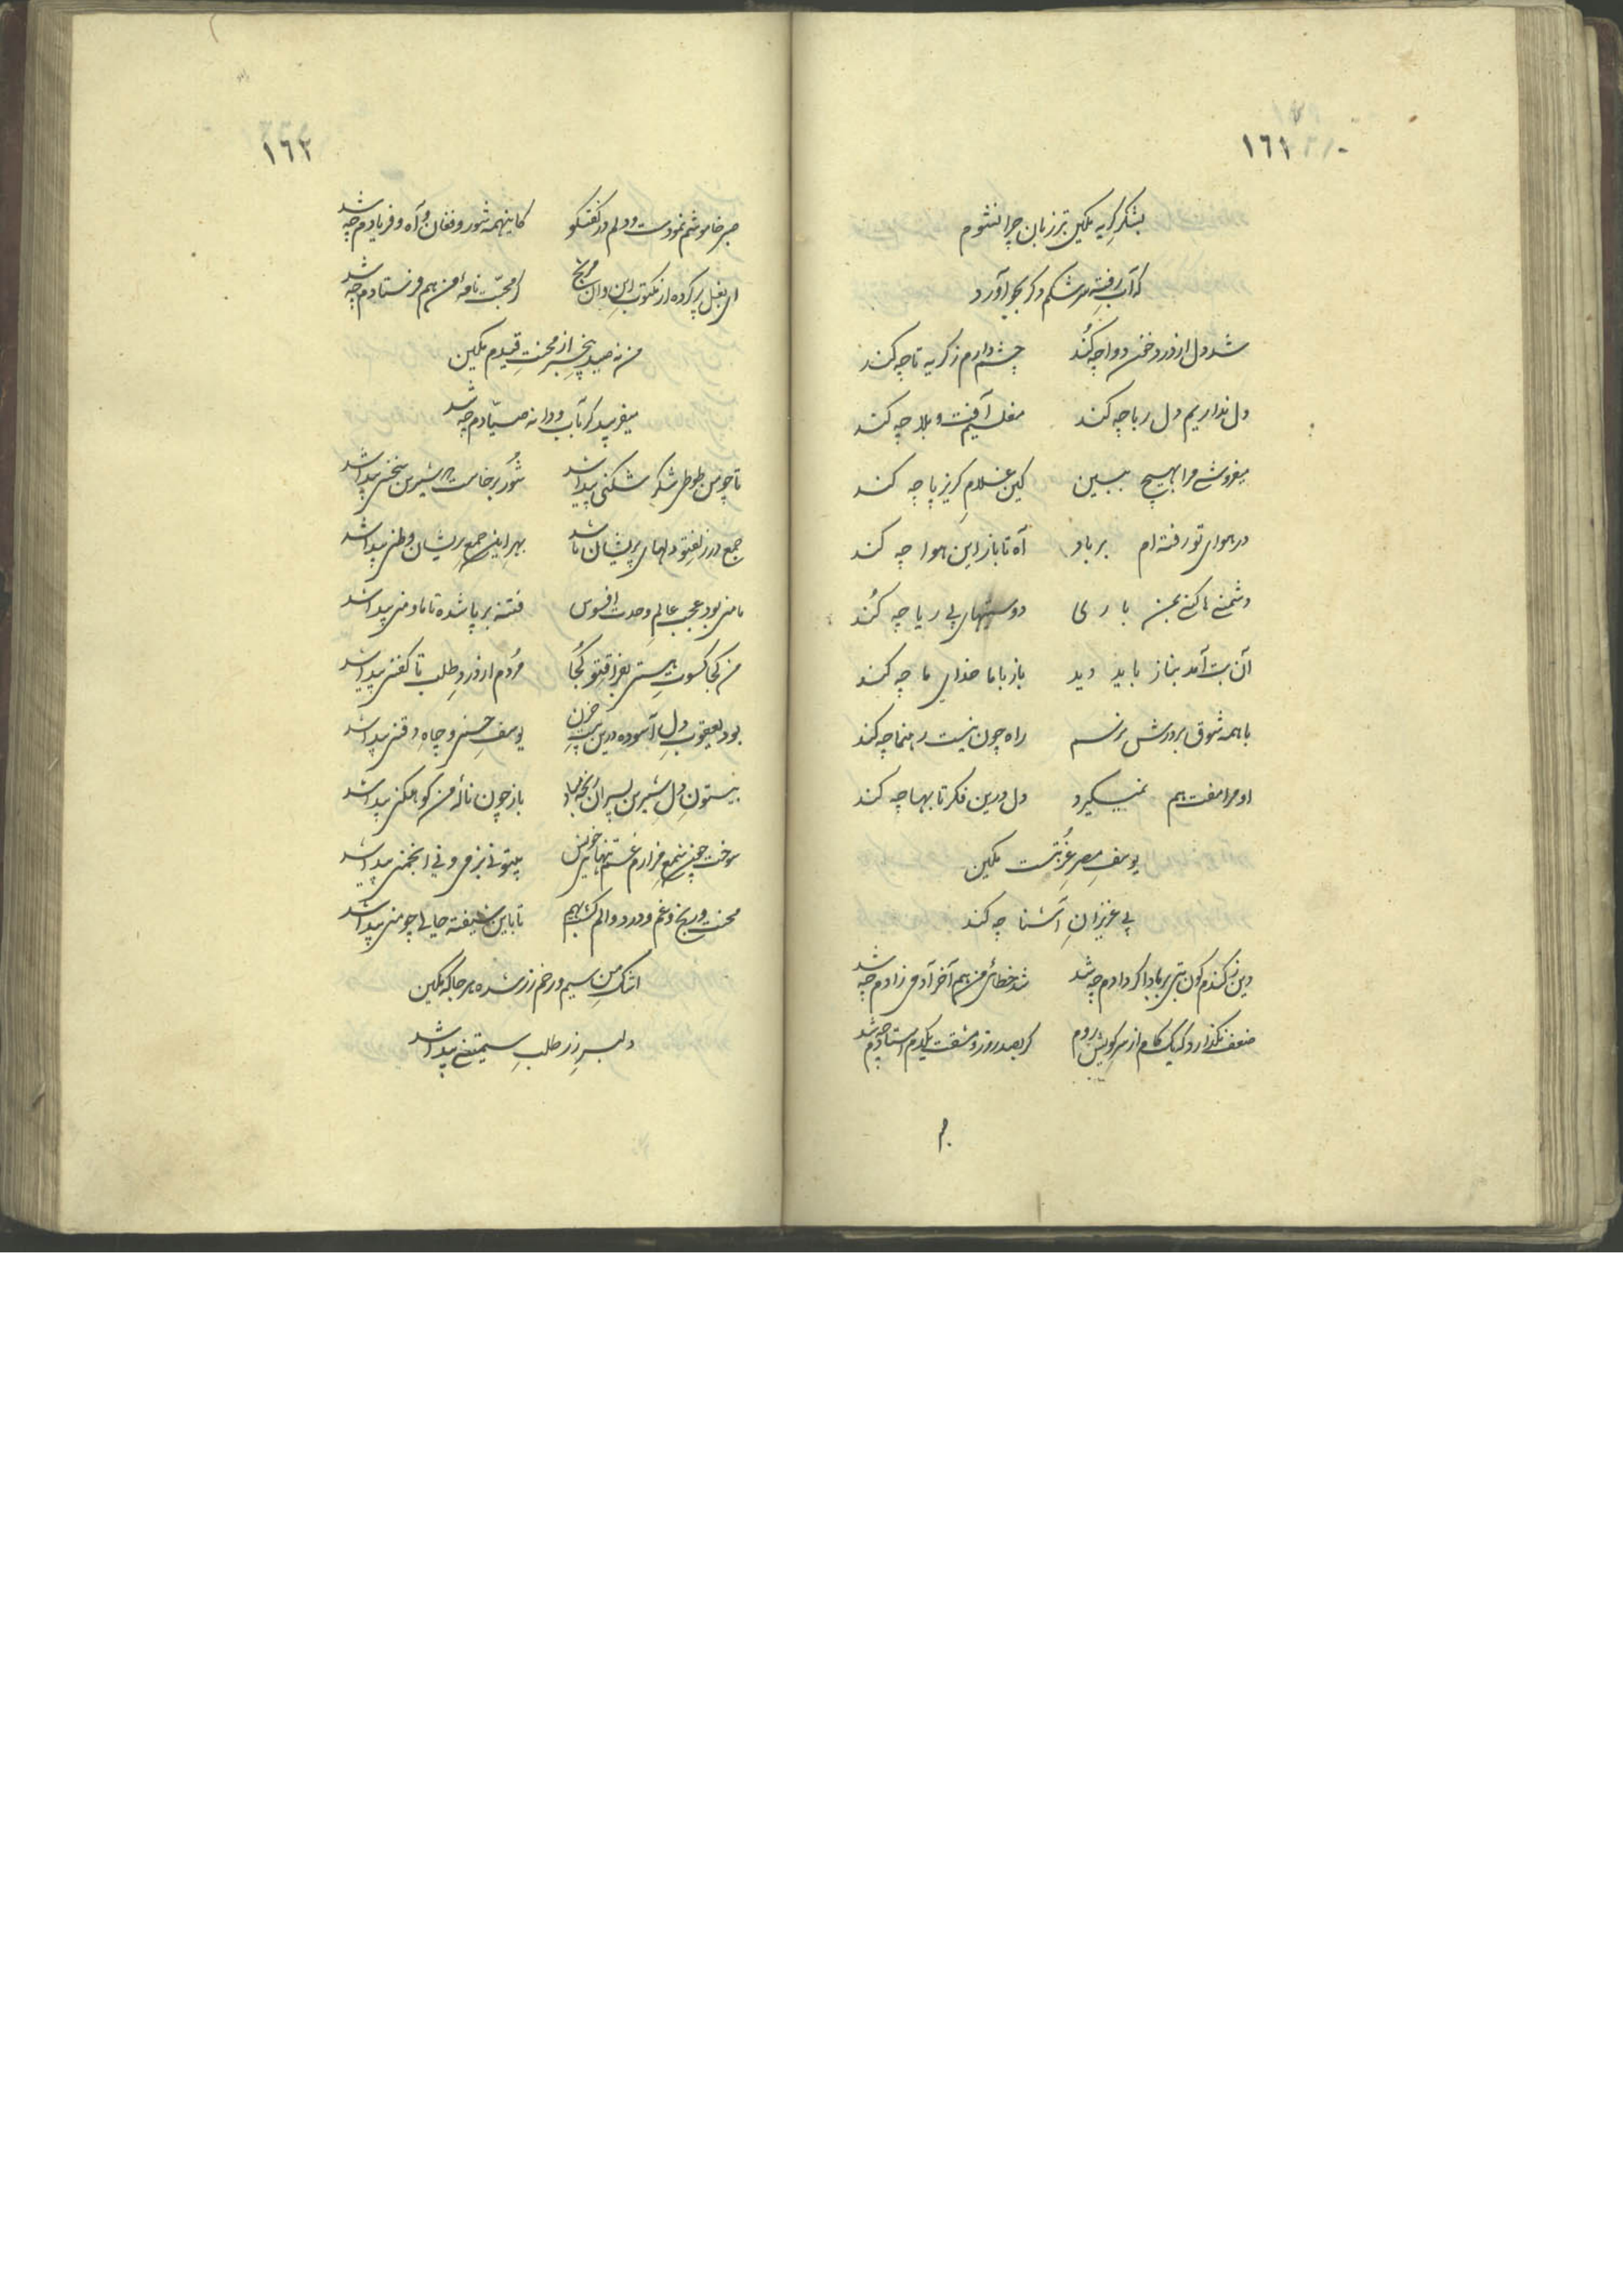 ١٦١
بشکر گریه مکین تر زبان چرا نشوم
که آب رفتهٔ سرشکم دگر بجو آورد
شد دل از درد خون دوا چه کند چشم دارم ز گریه تا چه کند
دل نداریم دل ربا چه کند مفلسیم آفت و بلا چه کند
میفروشی مرا بهیچ ببین کین غلام گریز پا چه کند
در هوای تو رفته ام بر باد آه تا باز این هوا چه کند
دشمنی ها کنی بمن باری دوستیهای بی ریا چه کند
آن بت آمد بناز باید دید باز با ما خدای ما چه کند
با همه شوق بر درش نرسم راه چون نیست رهنما چه کند
او مرا مفت هم نمیگیرد دل درین فکر تا بها چه کند
یوسف مصر غربتست مکین
بی عزیزان آشنا چه کند
دین ز گندم گون بتی بر باد اگر دادم چه شد شد خطائی من هم آخر آدمی زادم چه شد
ضعف نگذارد که یک گام از سر کویش روم گر بصد روز و مشقت یکدم استادم چه شد
١٦٢
صبر خاموشم نمودست و دلم در گفتگو کاینهمه شور و فغان و آه و فریادم چه شد
ای بغل پر کرده از مکتوب این و آن مرنج گر محبت نامهٔ من هم فرستادم چه شد
من نه صید بیخبر از محنت قیدم مکین
میفریبد گر بآب و دانه صیادم چه شد
تا چو من طوطی شکر شکنی پیدا شد شور برخاست که شیرین سخنی پیدا شد
جمع در زلف تو دلهای پریشان تا شد بهر این جمع پریشان وطنی پیدا شد
ما منی بود عجب عالم وحدت افسوس فتنه بر پا شده تا ما و منی پیدا شد
من کجا کسوت هستی بفراق تو کجا مردم از درد طلب تا کفنی پیدا شد
بود یعقوب دل آسوده درین بیت حزن یوسف حسنی و چاه ذقنی پیدا شد
بیستون دل شیرین پسران باز چون نالهٔ من کوهکنی پیدا شد
سوخت چون شمع مزارم غم تنهائی خویش بیتو نی بزمی و نی انجمنی پیدا شد
محنت و رنج و غم و درد و الم گشت بهم تا باین شیفته حالی چو منی پیدا شد
اشک من سیم و رخم زر شده هر جا که مکین
دلبر زر طلب سیمتنی پیدا شد